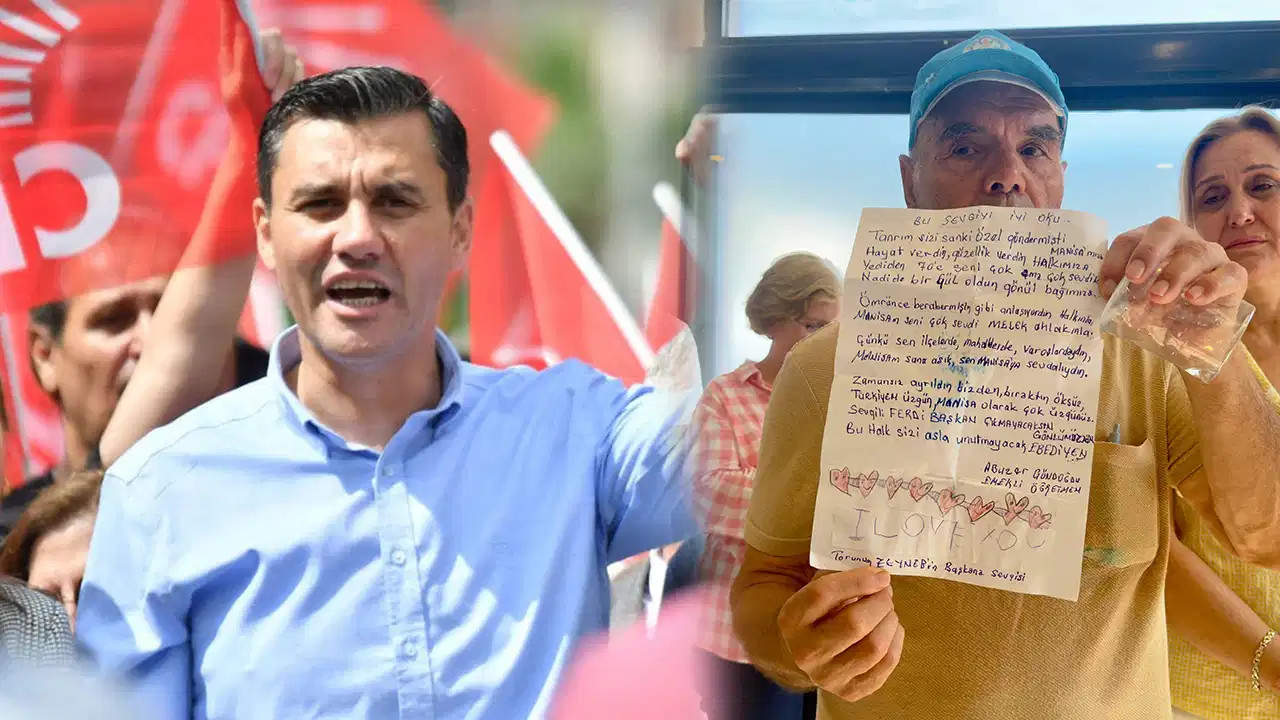 C
BU SEVGİYİ İYİ OKU...
Tanrım sizi sanki özel göndermişti
Hayat verdin, güzellik verdin MANİSA'mıza
Yediden 70'e seni çok ama çok sevdi HALKIMIZ
Nadide bir gül oldun gönül bağımıza.
Ömrünce berabermişin gibi anlaşıyordun Halkınla,
MANİSAN seni çok sevdi MELEK ahlakınla.
Çünkü sen ilçelerde, mahallerde, varoşlardaydın,
MANİSAN sana aşık, sen MANİSA'YA sevdalıydın.
Zamansız ayrıldın bizden, bıraktın öksüz,
TÜRKİYEM üzgün, MANİSA olarak çok üzgünüz.
Sevgili FERDİ BAŞKAN ÇIKMAYACAKSIN GÖNLÜMÜZDEN
Bu Halk sizi asla unutmayacak EBEDİYEN
ABUZER GÜNDOĞDU
EMEKLİ ÖĞRETMEN
I LOVE YOU
Torunum ZEYNEB'in Başkana Sevgisi